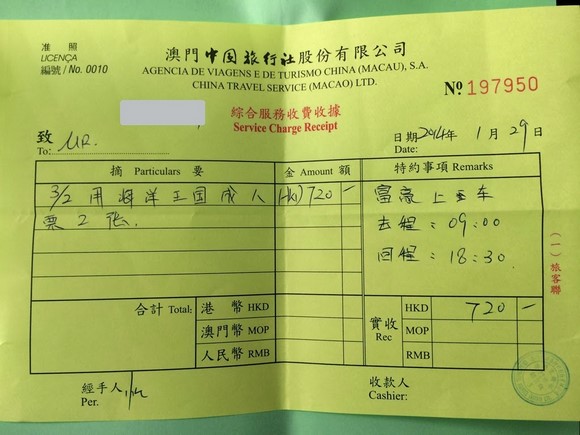 准照
澳門中国旅行社股份有限公司
LICENÇA
AGENCIA DE VIAGENS E DE TURISMO CHINA (MACAU), S.A.
編號/No. 0010
CHINA TRAVEL SERVICE (MACAO) LTD.
Nº 197950
綜合服務收費收據
Service Charge Receipt
致
To: MR.
日期 2014年 1月 29日
Date:
摘 Particulars 要
金 Amount 額
特約事項 Remarks
3/2 用海洋王国成人
HKD 720 —
富豪上坐车
票2张.
去程: 09:00
回程: 18:30
(一)旅客聯
合計 Total:
港幣 HKD
澳門幣 MOP
人民幣 RMB
實收
Rec
HKD 720 —
MOP
RMB
經手人
Per.
收款人
Cashier: